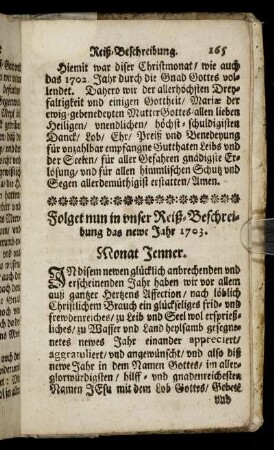 Reiß-Beschreibung. 165
Hiemit war diser Christmonat/ wie auch
das 1702. Jahr durch die Gnad Gottes vol-
lendet. Dahero wir der allerhöchsten Drey-
faltigkeit und einigen Gottheit/ Mariæ der
ewig-gebenedeyten Mutter Gottes/ allen lieben
Heiligen/ vnendlichen/ höchst-schuldigisten
Danck/ Lob/ Ehr/ Preiß und Benedeyung
für vnzahlbar empfangne Gutthaten Leibs vnd
der Seelen/ für aller Gefahren gnädigste Er-
lösung/ vnd für allen himmlischen Schutz vnd
Segen allerdemüthigist erstatten/ Amen.
Folget nun in vnser Reiß-Beschrei-
bung das newe Jahr 1703.
Monat Jenner.
IN disem newen glücklich anbrechenden vnd
erscheinenden Jahr haben wir vor allem
auß gantzer Hertzens Affection/ nach löblich
Christlichem Brauch ein glückseliges frid- vnd
frewdenreiches/ zu Leib vnd Seel wol ersprieß-
liches/ zu Wasser vnd Land heylsamb gesegne-
netes newes Jahr einander appreciert/
aggratuliert/ vnd angewünscht/ vnd also diß
newe Jahr in dem Namen Gottes/ im aller-
glorwürdigsten/ hilff- vnd gnadenreichesten
Namen JEsu mit dem Lob Gottes/ Gebett
vnd